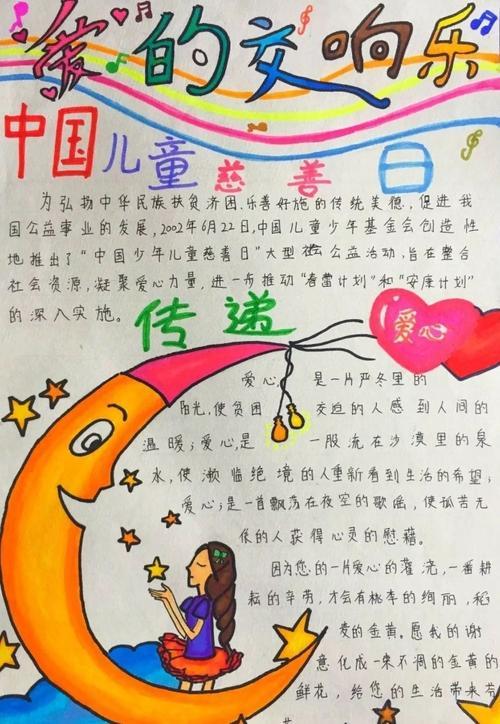 爱的交响乐
中国儿童慈善日
为弘扬中华民族扶贫济困、乐善好施的传统美德，促进我
国公益事业的发展，2002年6月22日，中国儿童少年基金会创造性
地推出了“中国少年儿童慈善日”大型公益活动，旨在整合
社会资源，凝聚爱心力量，进一步推动“春蕾计划”和“安康计划”
的深入实施。
传递
爱心
爱心，是一片严冬里的
阳光，使贫困交迫的人感到人间的
温暖；爱心，是一股流在沙漠里的泉
水，使濒临绝境的人重新看到生活的希望；
爱心；是一首飘荡在夜空的歌谣，使孤苦无
依的人获得心灵的慰藉。
因为您的一片爱心的灌浇，一番耕
耘的辛劳，才会有桃李的绚丽，稻
麦的金黄。愿我的谢
意化成一束不凋的金黄的
鲜花，给您的生活带来芬